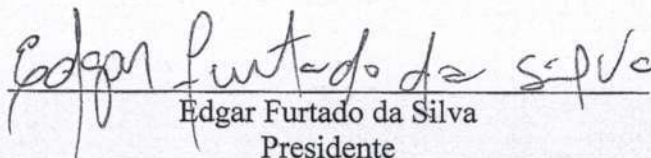 Edgar Furtado da Silva
Edgar Furtado da Silva
Presidente